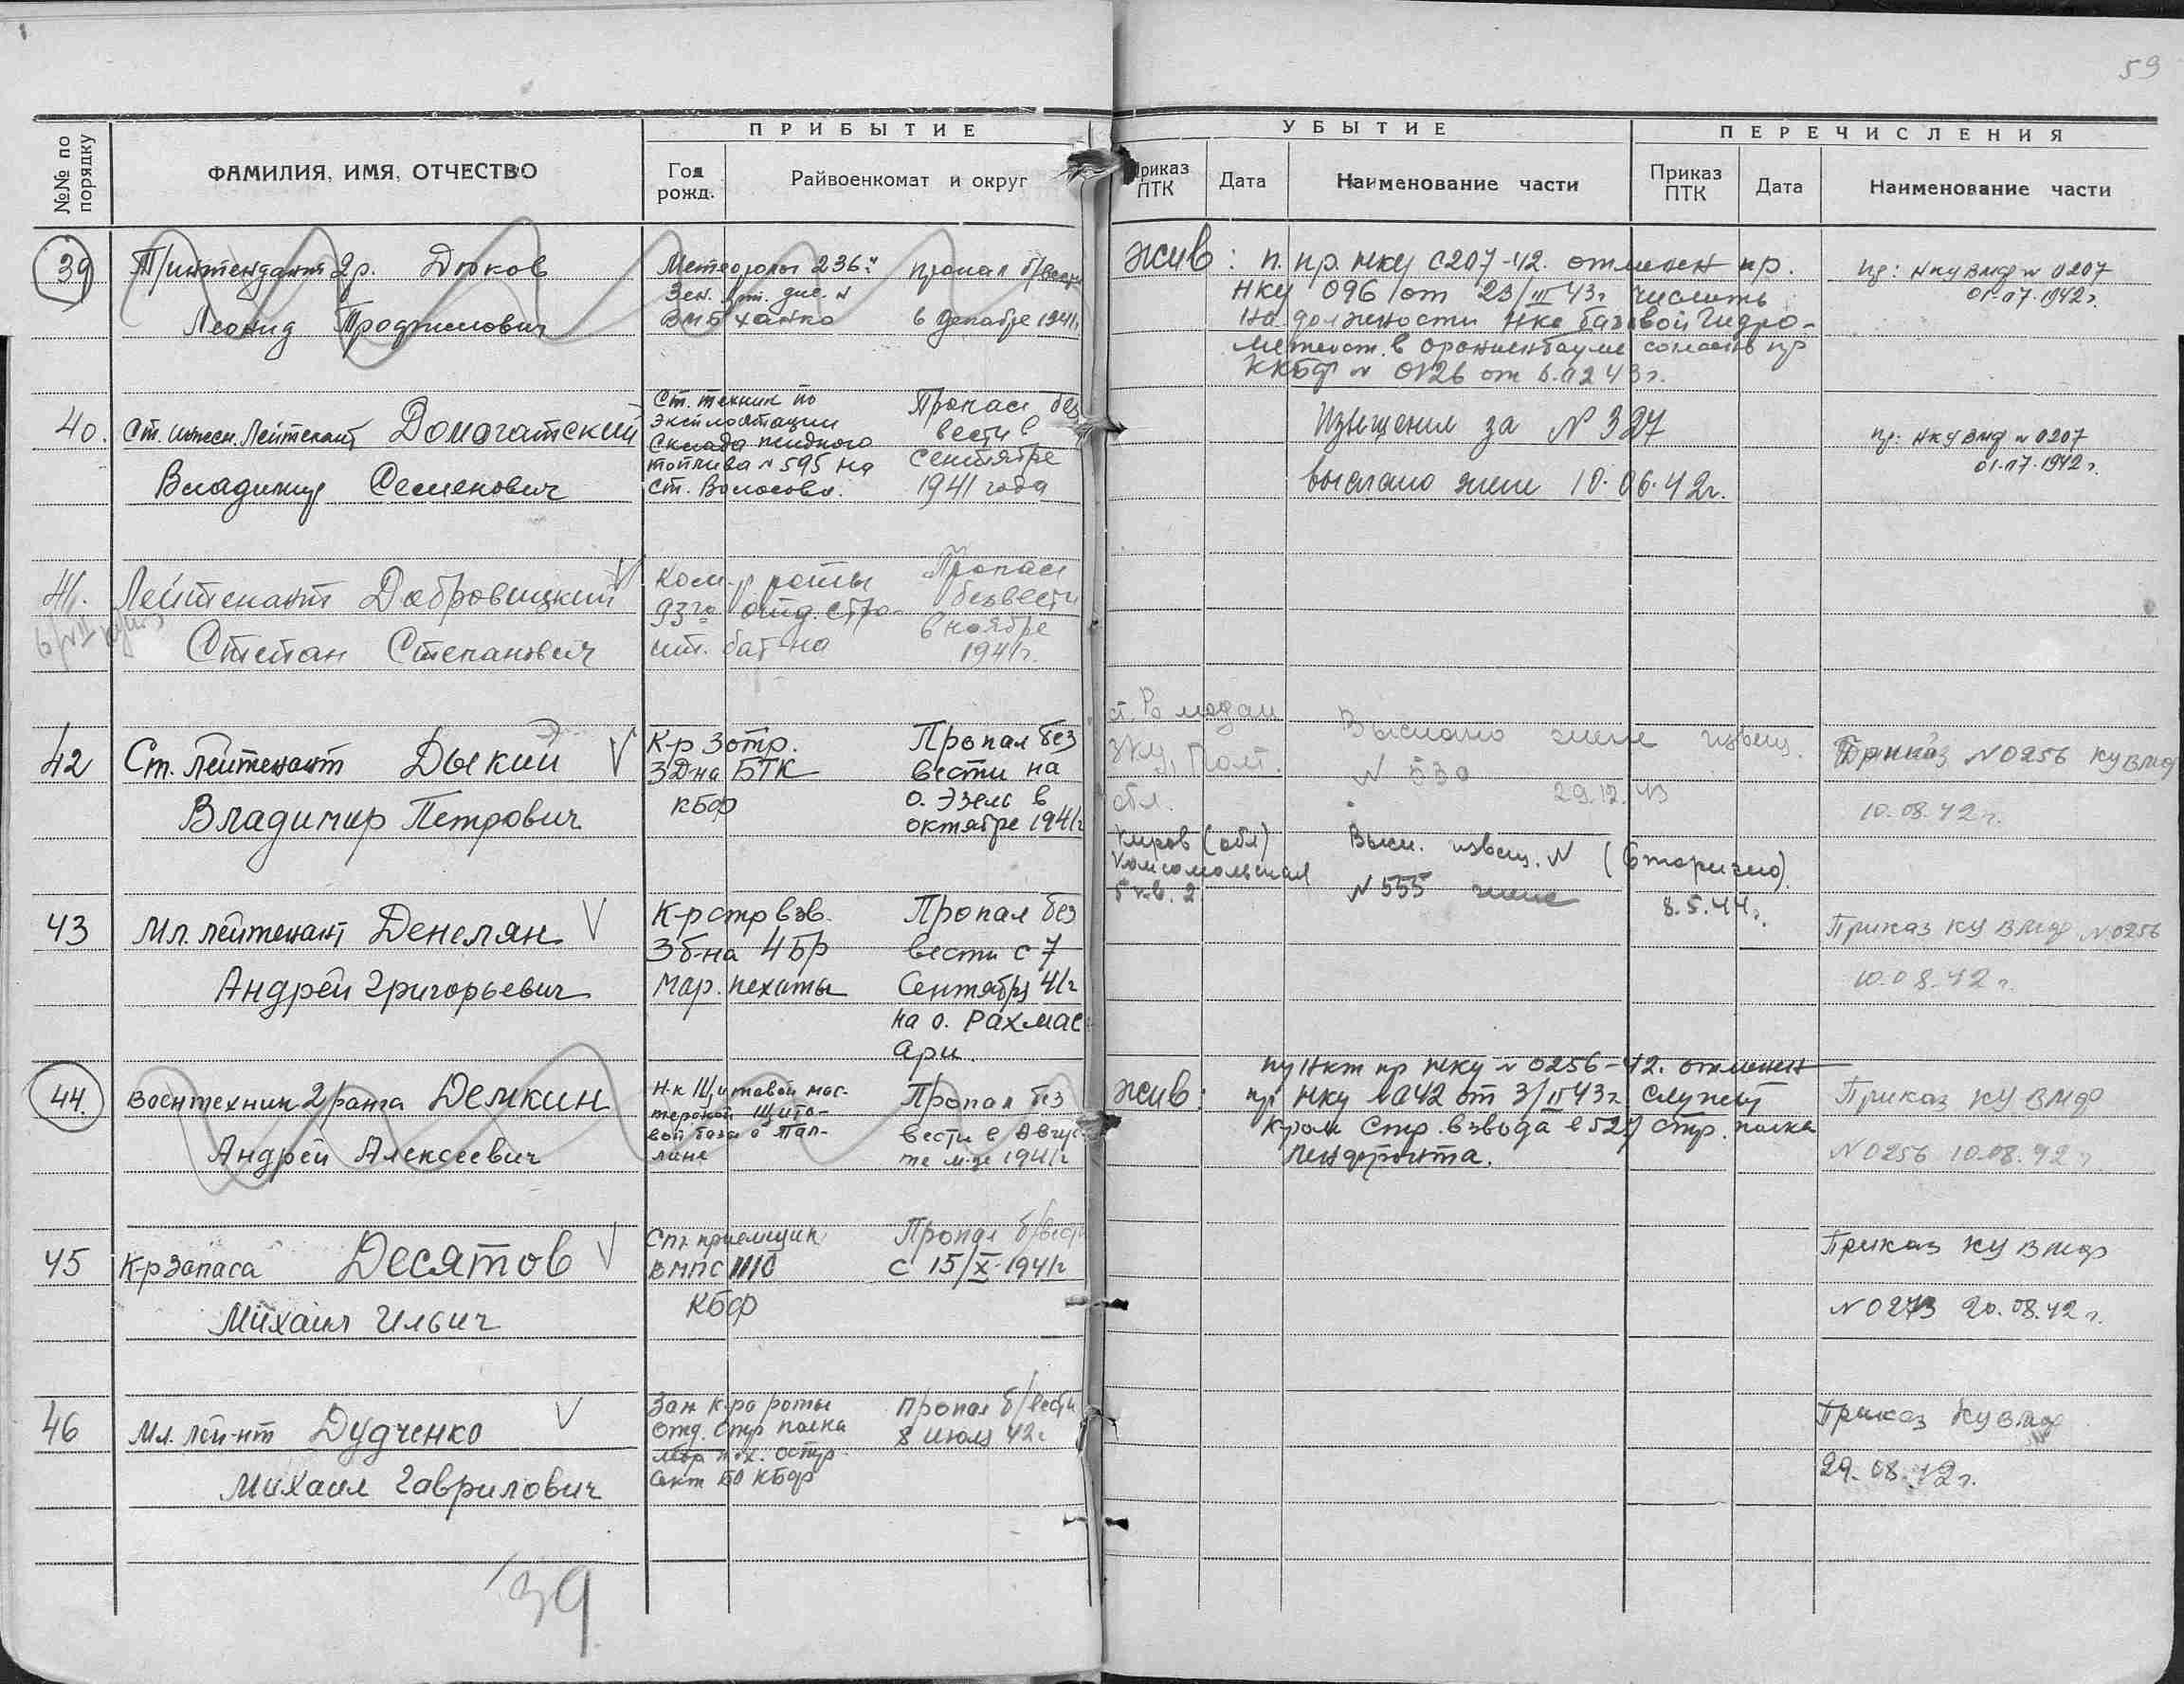 59
№№ по порядку
ФАМИЛИЯ, ИМЯ, ОТЧЕСТВО
ПРИБЫТИЕ
Год рожд.
Райвоенкомат и округ
УБЫТИЕ
Приказ ПТК
Дата
Наименование части
ПЕРЕЧИСЛЕНИЯ
Приказ ПТК
Дата
Наименование части
39
Т/интендант 2 р. Дюков
Леонид Трофимович
Метеоролог 236й
Зен. арт. див. и
ВМБ Ханко
пропал б/вести
в декабре 1941г.
жив: п. пр. НКУ с207-42. отменен пр.
НКУ 096 от 23/III 43г числить
на должности нке базовой Гидро-
метеост. в Ораниенбауме согласно пр
ККБФ № 0126 от 6.02 43г.
пр: НКУ ВМФ № 0207
01.07.1942г.
40.
Ст. инжен. Лейтенант Домогатский
Владимир Семенович
Ст. техник по
эксплоатации
Склада жидкого
топлива № 595 на
ст. Волосово.
Пропал без
вести в
сентябре
1941 года
Извещение за № 327
выслано жене 10.06.42г.
пр: НКУ ВМФ № 0207
01.07.1942г.
41.
Лейтенант Добровицкий
Степан Степанович
Ком-р роты
93го отд. стро-
ит. бат-на
Пропал
безвести
в ноябре
1941г.
42
Ст. Лейтенант Дыкий
Владимир Петрович
К-р 3 отр.
3 Д-на БТК
КБФ
Пропал без
вести на
о. Эзель в
октябре 1941г
ст. Ромодан
Полт.
обл.
Выслано жене извещ.
№ 530
29.12.43
Приказ № 0256 КУ ВМФ
10.08.42г.
Киров (обл)
Комсомольская
5 кв. 2
Высл. извещ. № (вторично)
№ 555 жене
8.5.44г.
43
Мл. лейтенант Денелян
Андрей Григорьевич
К-р стр взв.
3 б-на 4 бр
мар. пехоты
Пропал без
вести с 7
Сентября 41г
на о. Рахмас-
ари.
Приказ КУ ВМФ № 0256
10.08.42г.
44.
Воентехник 2 ранга Демкин
Андрей Алексеевич
Н-к Щитовой мас-
терской Щито-
вой базы в Тал-
лине
Пропал без
вести в Авгус-
те м-це 1941г
жив: пункт пр НКУ № 0256-42. отменен
пр НКУ № 042 от 3/II 43г. служит
К-ром Стр. взвода в стр. полка
Ленфронта.
Приказ КУ ВМФ
№ 0256 10.08.42г
45
К-р запаса Десятов
Михаил Ильич
Ст. приемщик
ВМПС 1110
КБФ
Пропал б/вести
с 15/X-1941г
Приказ КУ ВМФ
№ 0273 20.08.42г.
46
Мл. лей-нт Дудченко
Михаил Гаврилович
Зам к-ра роты
Отд. Стр полка
мор пех. остр.
сект БО КБФ
пропал б/вести
8 июля 42г
Приказ КУ ВМФ
29.08.42г.
39